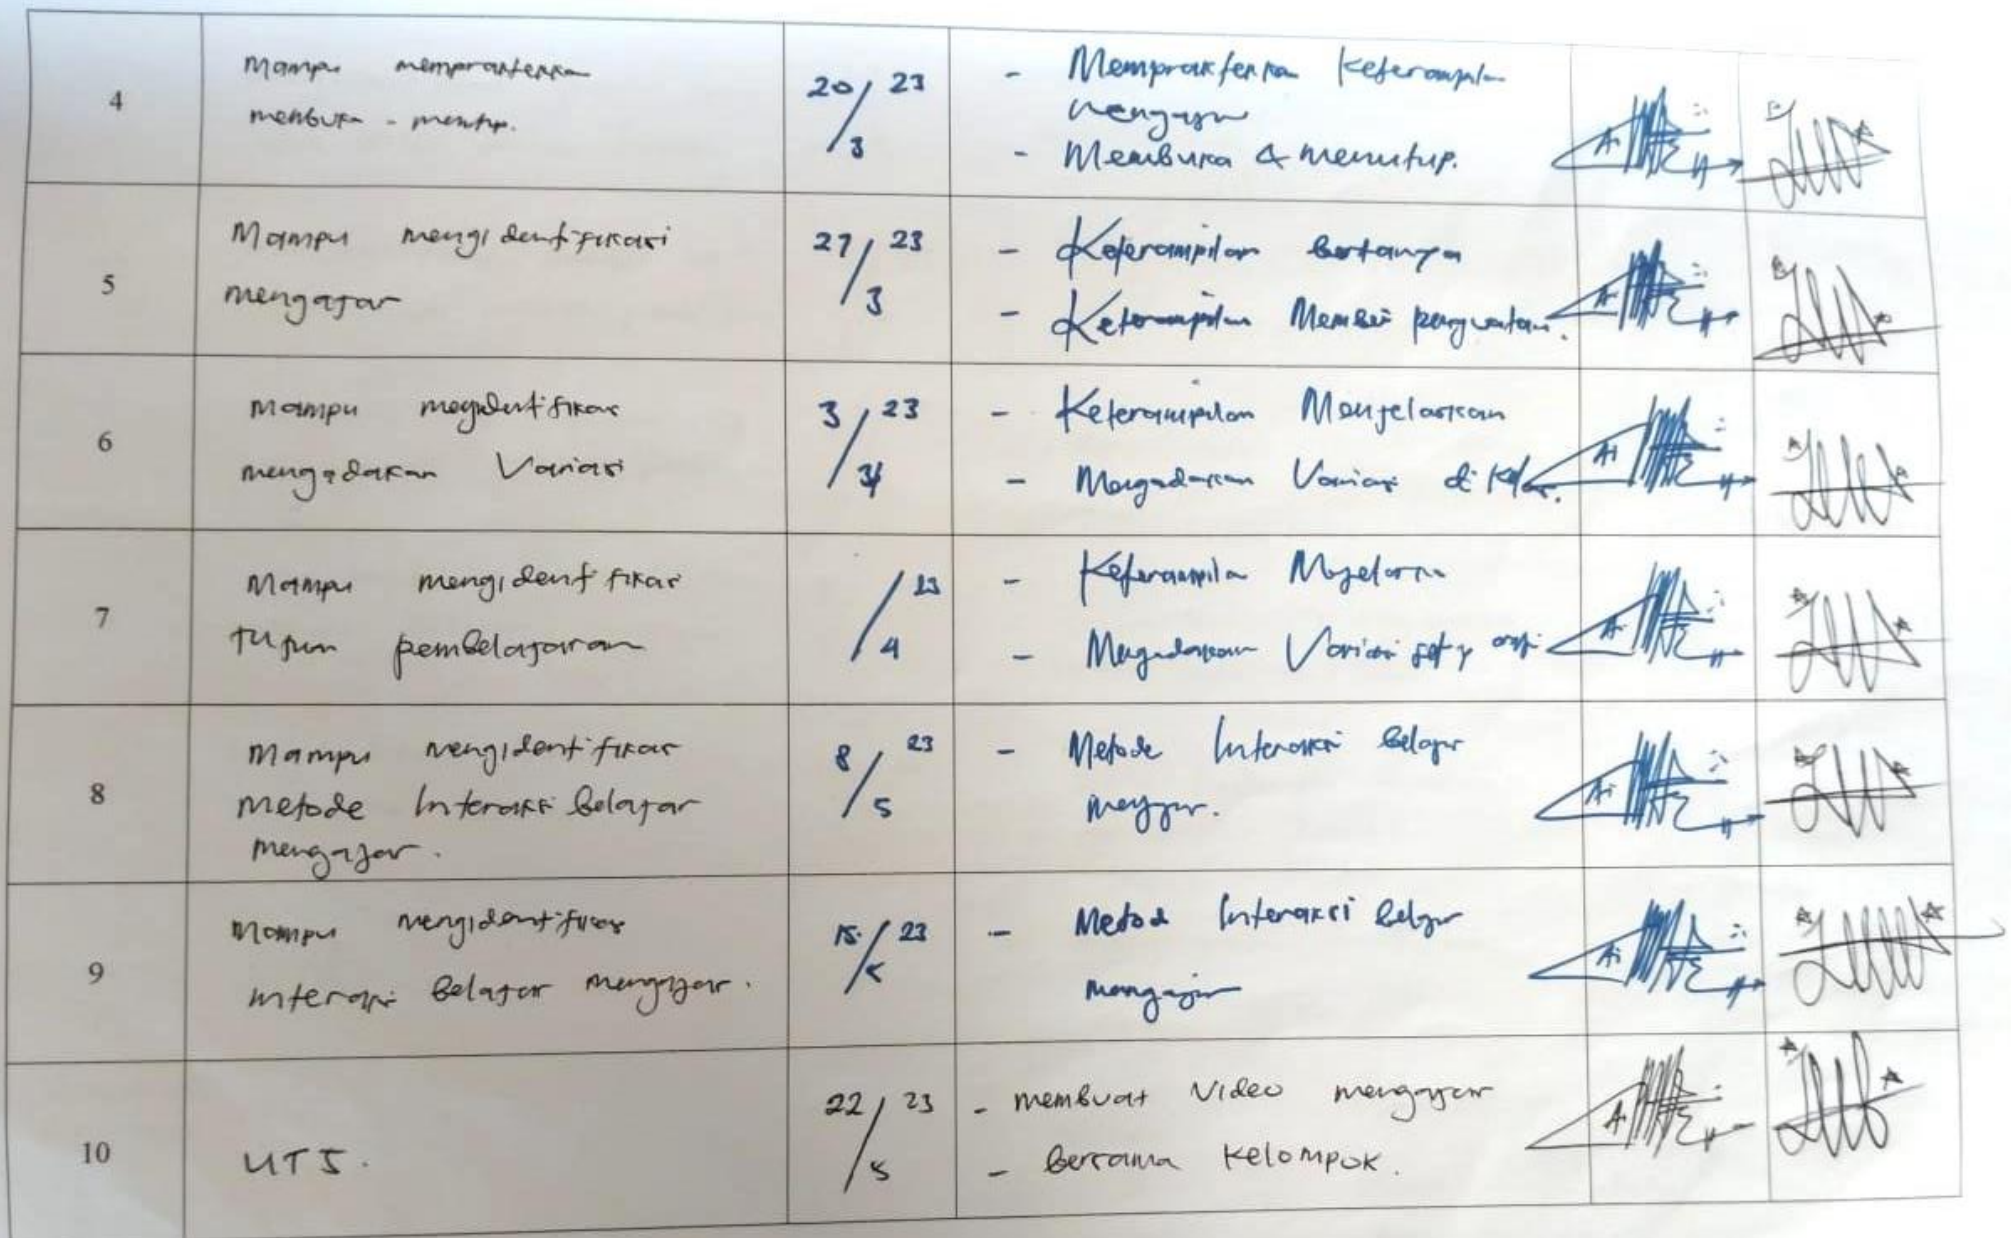 4
Mampu mempraktekkan
membuka - menutup.
20/3 23
- Mempraktekkan Keterampilan
mengajar
- Membuka & menutup.
5
Mampu mengidentifikasi
mengajar
27/3 23
- Keterampilan bertanya
- Keterampilan Memberi penguatan.
6
Mampu
mengadakan Variasi
3/ 23
- Keterampilan Menjelaskan
- Mengadakan Variasi di Kelas.
7
Mampu mengidentifikasi
tujuan pembelajaran
/4 23
- Keterampilan
- Mengadakan Variasi
8
Mampu mengidentifikasi
Metode Interaksi belajar
mengajar.
8/5 23
- Metode Interaksi belajar
mengajar.
9
Mampu mengidentifikasi
interaksi belajar mengajar.
15/5 23
- Metode Interaksi belajar
mengajar
10
UTS.
22/5 23
- membuat Video mengajar
- bersama Kelompok.